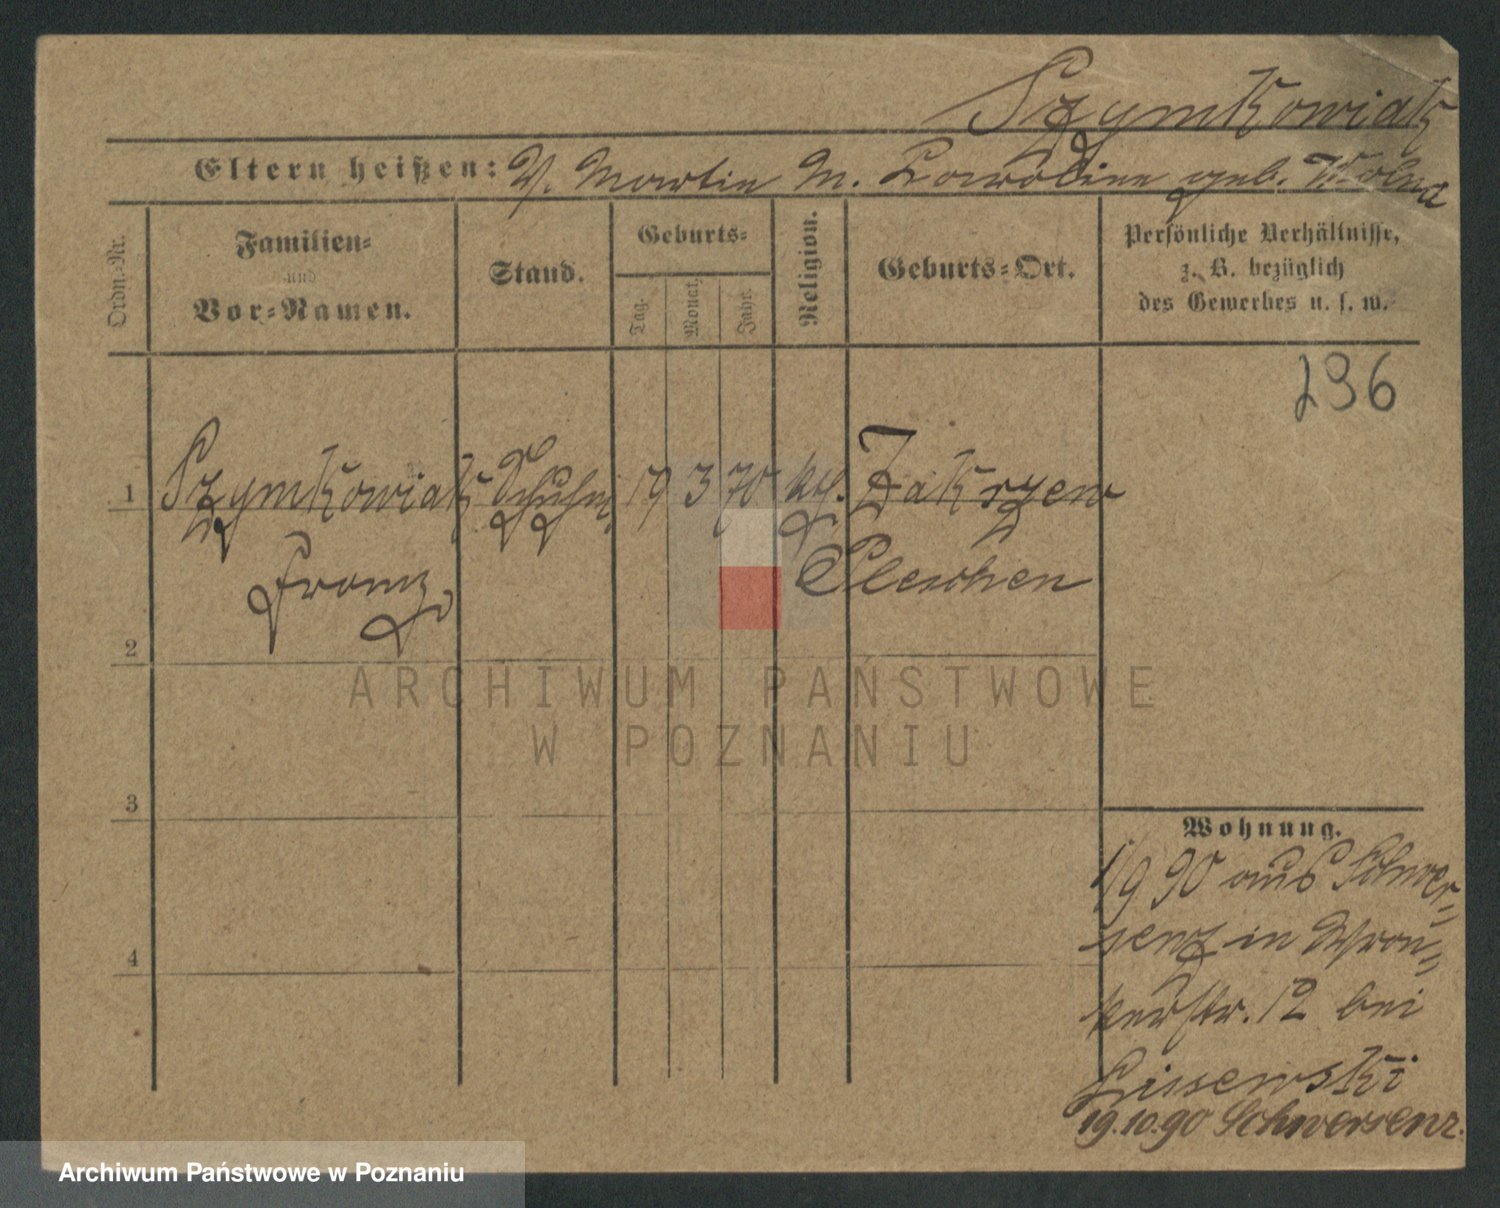 Szymkowiak
Eltern heißen: V. Martin M. Karoline geb. Wolna
Ordn.-Nr.
Familien-
und
Vor-Namen.
Stand.
Geburts-
Tag.
Monat.
Jahr.
Religion.
Geburts-Ort.
Persönliche Verhältnisse,
z. B. bezüglich
des Gewerbes u. s. w.
296
1 Szymkowiak Schuhm. 19 3 70 kath. Zakrzew
Franz Pleschen
2
ARCHIWUM PAŃSTWOWE
W POZNANIU
3
Wohnung.
1/9 90 aus Schwer-
senz in Wron-
kerstr. 12 bei
4
Lissewski
19.10.90 Schwersenz.
Archiwum Państwowe w Poznaniu